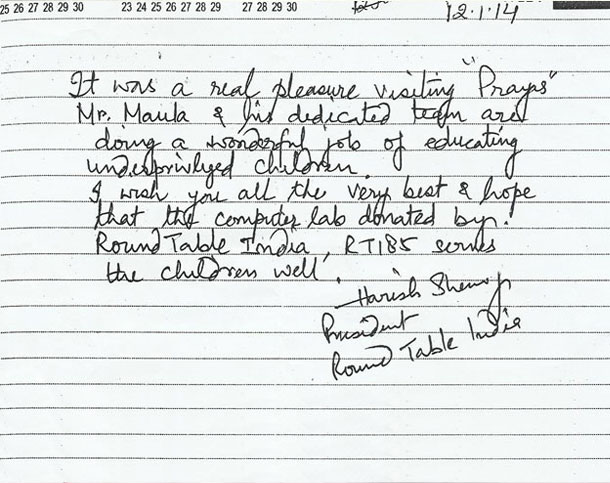 25 26 27 28 29 30 23 24 25 26 27 28 29 27 28 29 30
12.1.14
It was a real pleasure visiting "Prayas"
Mr. Maula & his dedicated team are
doing a wonderful job of educating
underprivlyed children.
I wish you all the very best & hope
that the computer lab donated by
Round Table India, RT185 serves
the children well.
Harish Shenoy
President
Round Table India